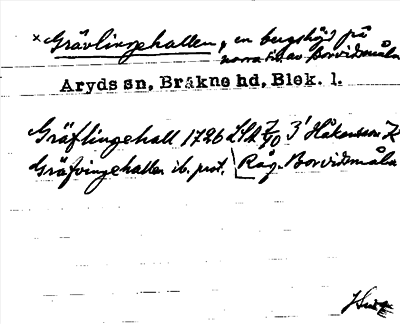 × Grävlingehallen, en bergshöjd på
norra til av Borvidsmåla
Aryds sn, Bräkne hd, Blek. l.
Gräflingehall 1726 LSA 3' Håkansson K
Gräfvingehallen ib. prot. Råg. Borvidsmåla